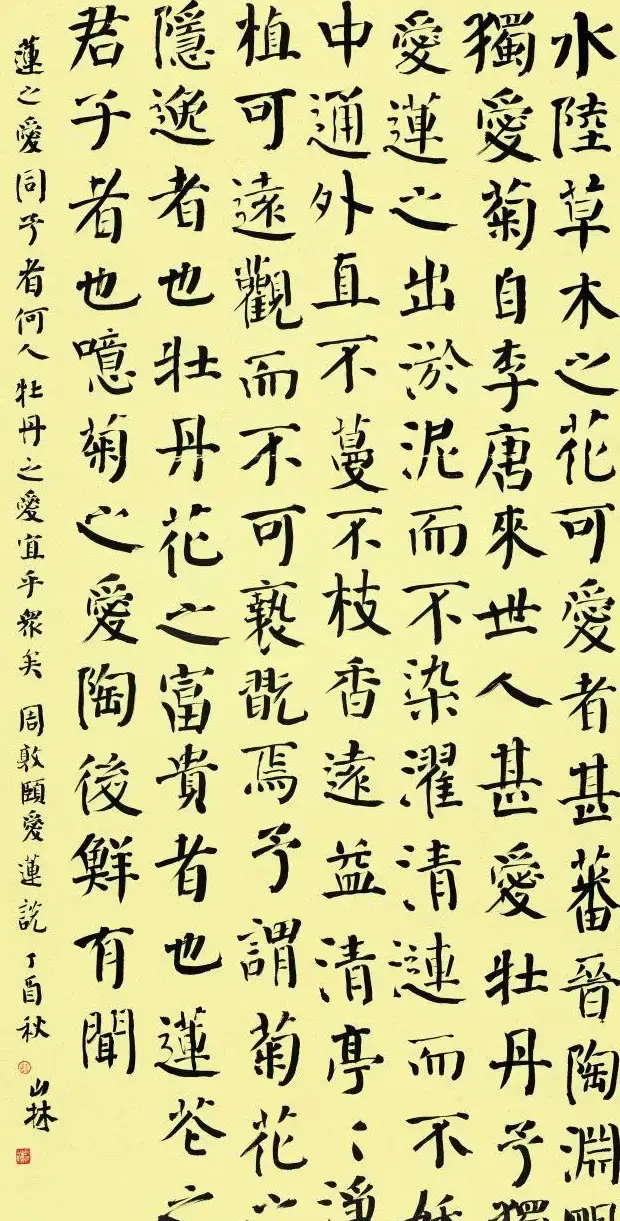 水陸草木之花可愛者甚蕃晉陶淵明
獨愛菊自李唐來世人甚愛牡丹予獨
愛蓮之出淤泥而不染濯清漣而不妖
中通外直不蔓不枝香遠益清亭〻淨
植可遠觀而不可褻翫焉予謂菊花之
隱逸者也牡丹花之富貴者也蓮花之
君子者也噫菊之愛陶後鮮有聞
蓮之愛同予者何人牡丹之愛宜乎眾矣 周敦頤愛蓮說 丁酉秋 山林